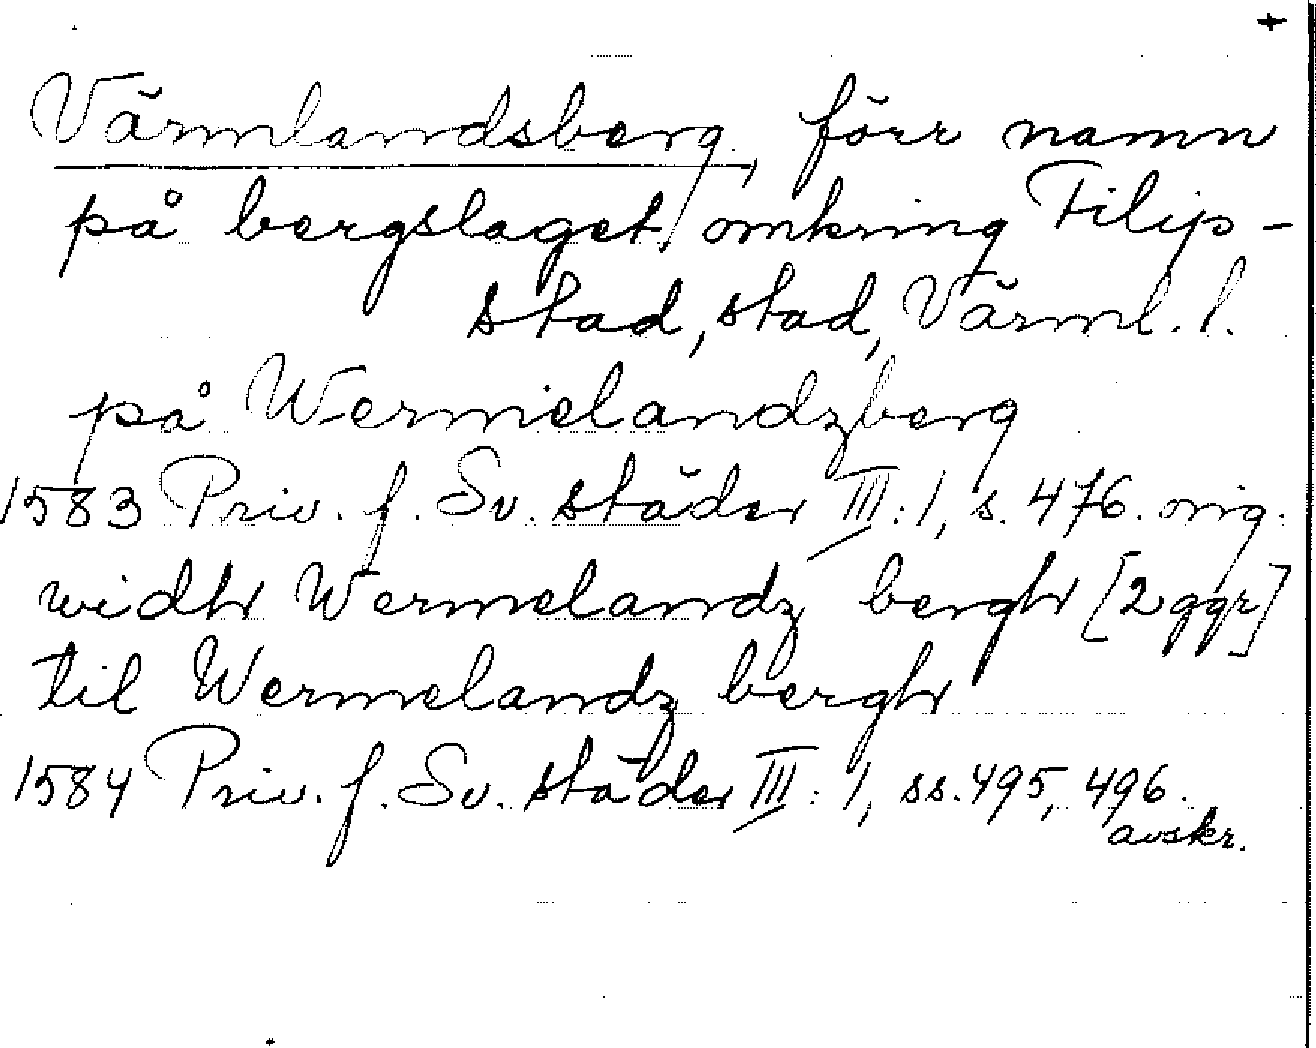 Värmlandsberg, förr namn
på bergslaget omkring Filip-
stad, stad, Värml. l.
på Wermelandzberg
1583 Priv. f. Sv. städer III: 1, s. 476. orig.
widh Wermelandz bergh [2 ggr]
til Wermelandz bergh
1584 Priv. f. Sv. städer III: 1, ss. 495, 496.
avskr.